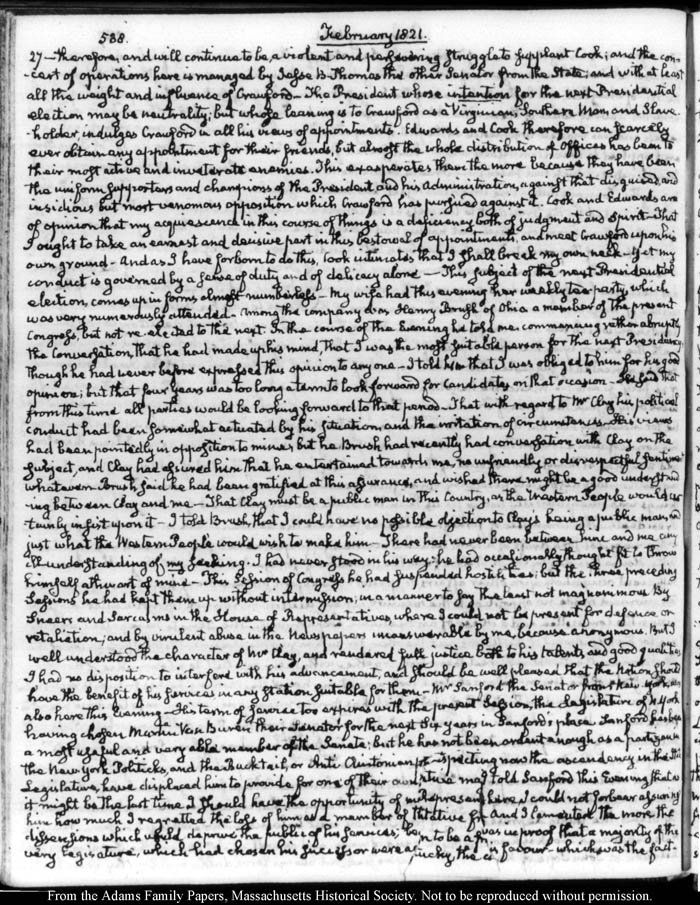 538. February 1821.
27 — therefore, and will continue to be, a violent and persevering struggle to supplant Cook; and the con-
-cert of operations here is managed by Jesse B. Thomas the other Senator from the State; and with at least
all the weight and influence of Crawford — The President whose intention for the next Presidential
election may be neutrality; but whose leaning is to Crawford as a Virginian, Southern Man, and Slave-
holder, indulges Crawford in all his views of appointments. Edwards and Cook therefore can scarcely
ever obtain any appointment for their friends, but almost the whole distribution of Offices has been to
their most active and inveterate enemies. This exasperates them the more because they have been
the uniform supporters and champions of the President and his Administration, against that disguised and
insidious but most venomous opposition which Crawford has pursued against it. Cook and Edwards are
of opinion that my acquiescence in this course of things is a deficiency both of judgment and Spirit — That
I ought to take an earnest and decisive part in this bestowal of appointments, and meet Crawford upon his
own ground — And as I have forborn to do this, Cook intimates that I shall break my own neck — Yet my
conduct is governed by a sense of duty and of delicacy alone — This subject of the next Presidential
election, comes up in forms almost numberless — My wife had this evening her weekly tea-party, which
was very numerously attended — Among the company was Henry Brush of Ohio a member of the present
Congress, but not re-elected to the next. In the course of the Evening he told me, commencing rather abruptly
the Conversation, that he had made up his mind, that I was the most suitable person for the next Presidency
though he had never before expressed this opinion to any one — I told him that I was obliged to him for his good
opinion; but that four years was too long a term to look forward for Candidates on that occasion — He said that
from this time all parties would be looking forward to that period — That with regard to Mr Clay his political
conduct had been somewhat actuated by his situation, and the irritation of circumstances. His views
had been pointedly in opposition to mine; but he Brush had recently had conversation with Clay on the
subject, and Clay had assured him that he entertained towards me, no unfriendly or disrespectful sentiment
whatever. Brush said he had been gratified at this assurance, and wished there might be a good understand-
ing between Clay and me — That Clay must be a public man in this Country, as the Western People would cer-
tainly insist upon it — I told Brush, that I could have no possible objection to Clay's being a public man, and
just what the Western People would wish to make him — There had never been between him and me any
ill-understanding of my seeking. I had never stood in his way: he had occasionally thought fit to throw
himself athwart of mine — This Session of Congress he had suspended hostilities; but the three preceding
Sessions he had kept them up without intermission; in a manner to say the least not magnanimous By
Sneers and Sarcasms in the House of Representatives, where I could not be present for defence or
retaliation; and by virulent abuse in the Newspapers unanswerable by me, because anonymous. But I
well understood the character of Mr Clay, and rendered full justice both to his talents, and good qualities
I had no disposition to interfere with his advancement, and should be well pleased that the Nation should
have the benefit of his services in any Station suitable for them — Mr Sanford the Senator from New York, was
also here this Evening — His term of service too expires with the present Session, the Legislature of N. York
having chosen Martin Van Buren their Senator for the next six years in Sanford's place. Sanford has been
a most useful and very able member of the Senate; but he has not been ardent enough as a partizan in
the New York Politicks, and the Bucktail, or Anti Clintonian having now the ascendency in the
Legislature, have displaced him to provide for one of their own. I told Sanford this Evening that as
it might be the last time I should have the opportunity of I could not forbear assuring
him how much I regretted the loss of him as a member of the and I lamented the more the
dissensions which would deprive the public of his services; was no proof that a majority of the
very Legislature, which had chosen his successor were in favour — which was the fact —
From the Adams Family Papers, Massachusetts Historical Society. Not to be reproduced without permission.